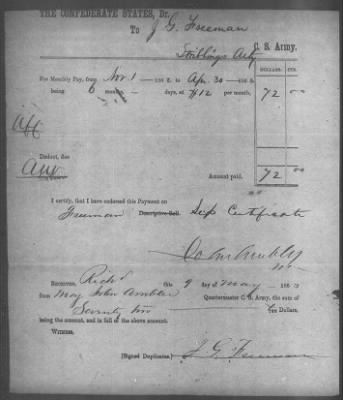 THE CONFEDERATE STATES, Dr.
To J. G. Freeman
Striblings Arty C. S. Army.
DOLLARS. CTS.
For Monthly Pay, from Nov. 1 186 2 to Apr. 30 186 3
being 6 months, — days, at $12 per month, 72 00
Deduct, due
72 00
Amount paid,
I certify, that I have endorsed this Payment on
Freeman Descriptive Roll. Certificate
RECEIVED, Richd this 9 day of May 186 3
from Maj John Ambler Quartermaster C. S. Army, the sum of
Seventy two Dollars,
being the amount, and in full of the above account.
WITNESS,
[Signed Duplicates.] J. G. Freeman